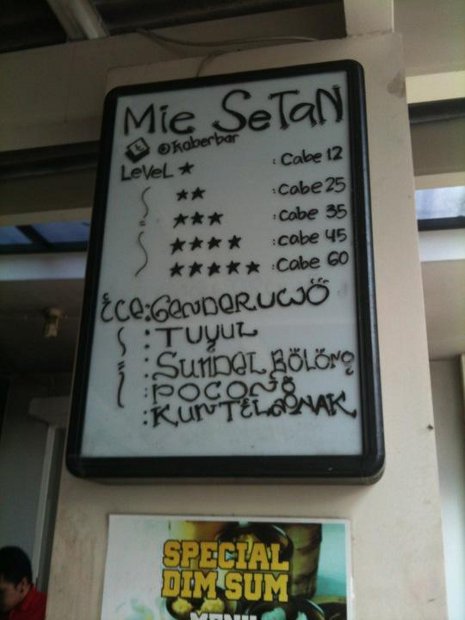 Mie SeTaN
@kaberbar
LeveL ★ : Cabe 12
★★ : Cabe 25
★★★ : Cabe 35
★★★★ : Cabe 45
★★★★★ : Cabe 60
ECE : GENDERUWO
: TUYUL
: SUNDEL BOLONG
: POCONG
: KUNTELANAK
SPECIAL
DIM SUM
MENU